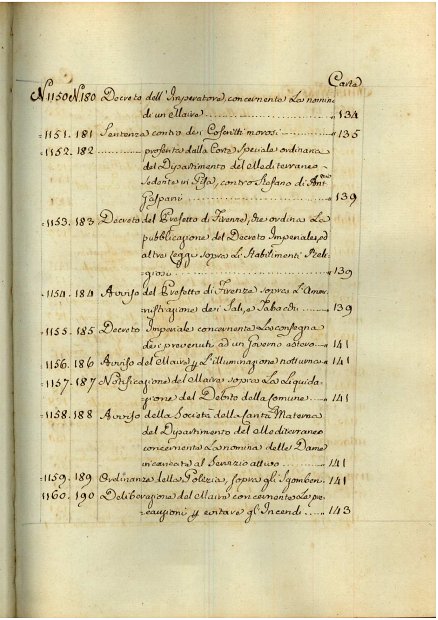 Carte
N 1150 N 180 Decreto dell'Imperatore, concernente La nomina
di un Maire 134
= 1151. 181 Sentenza contro dei Coscritti morosi 135
= 1152. 182 proferita dalla Corte Speciale ordinaria
del Dipartimento del Mediterraneo
Sedente in Pisa, contro Stefano di Ant
Gaspani 139
= 1153. 183 Decreto del Prefetto di Firenze, che ordina La
pubblicazione del Decreto Imperiale, ed
altre Leggi sopra Li Stabilimenti Reli-
giosi 139
= 1154. 184 Avviso del Prefetto di Firenze sopra L'Ammi-
nistrazione dei Sali, e Tabacchi 139
= 1155. 185 Decreto Imperiale concernente La consegna
dei prevenuti ad un Governo estero 141
= 1156. 186 Avviso del Maire p L'illuminazione notturna 141
= 1157. 187 Notificazione del Maire sopra La Liquida-
zione del Debito della Comune 141
= 1158. 188 Avviso della Società della Carità Materna
del Dipartimento del Mediterraneo
concernente La nomina delle Dame
incaricate al Servizio attivo 141
= 1159. 189 Ordinanza della Polizia, sopra gli Sgomberi 141
1160. 190 Deliberazione del Maire concernente Le pre-
cauzioni p evitare gl'Incendi 143